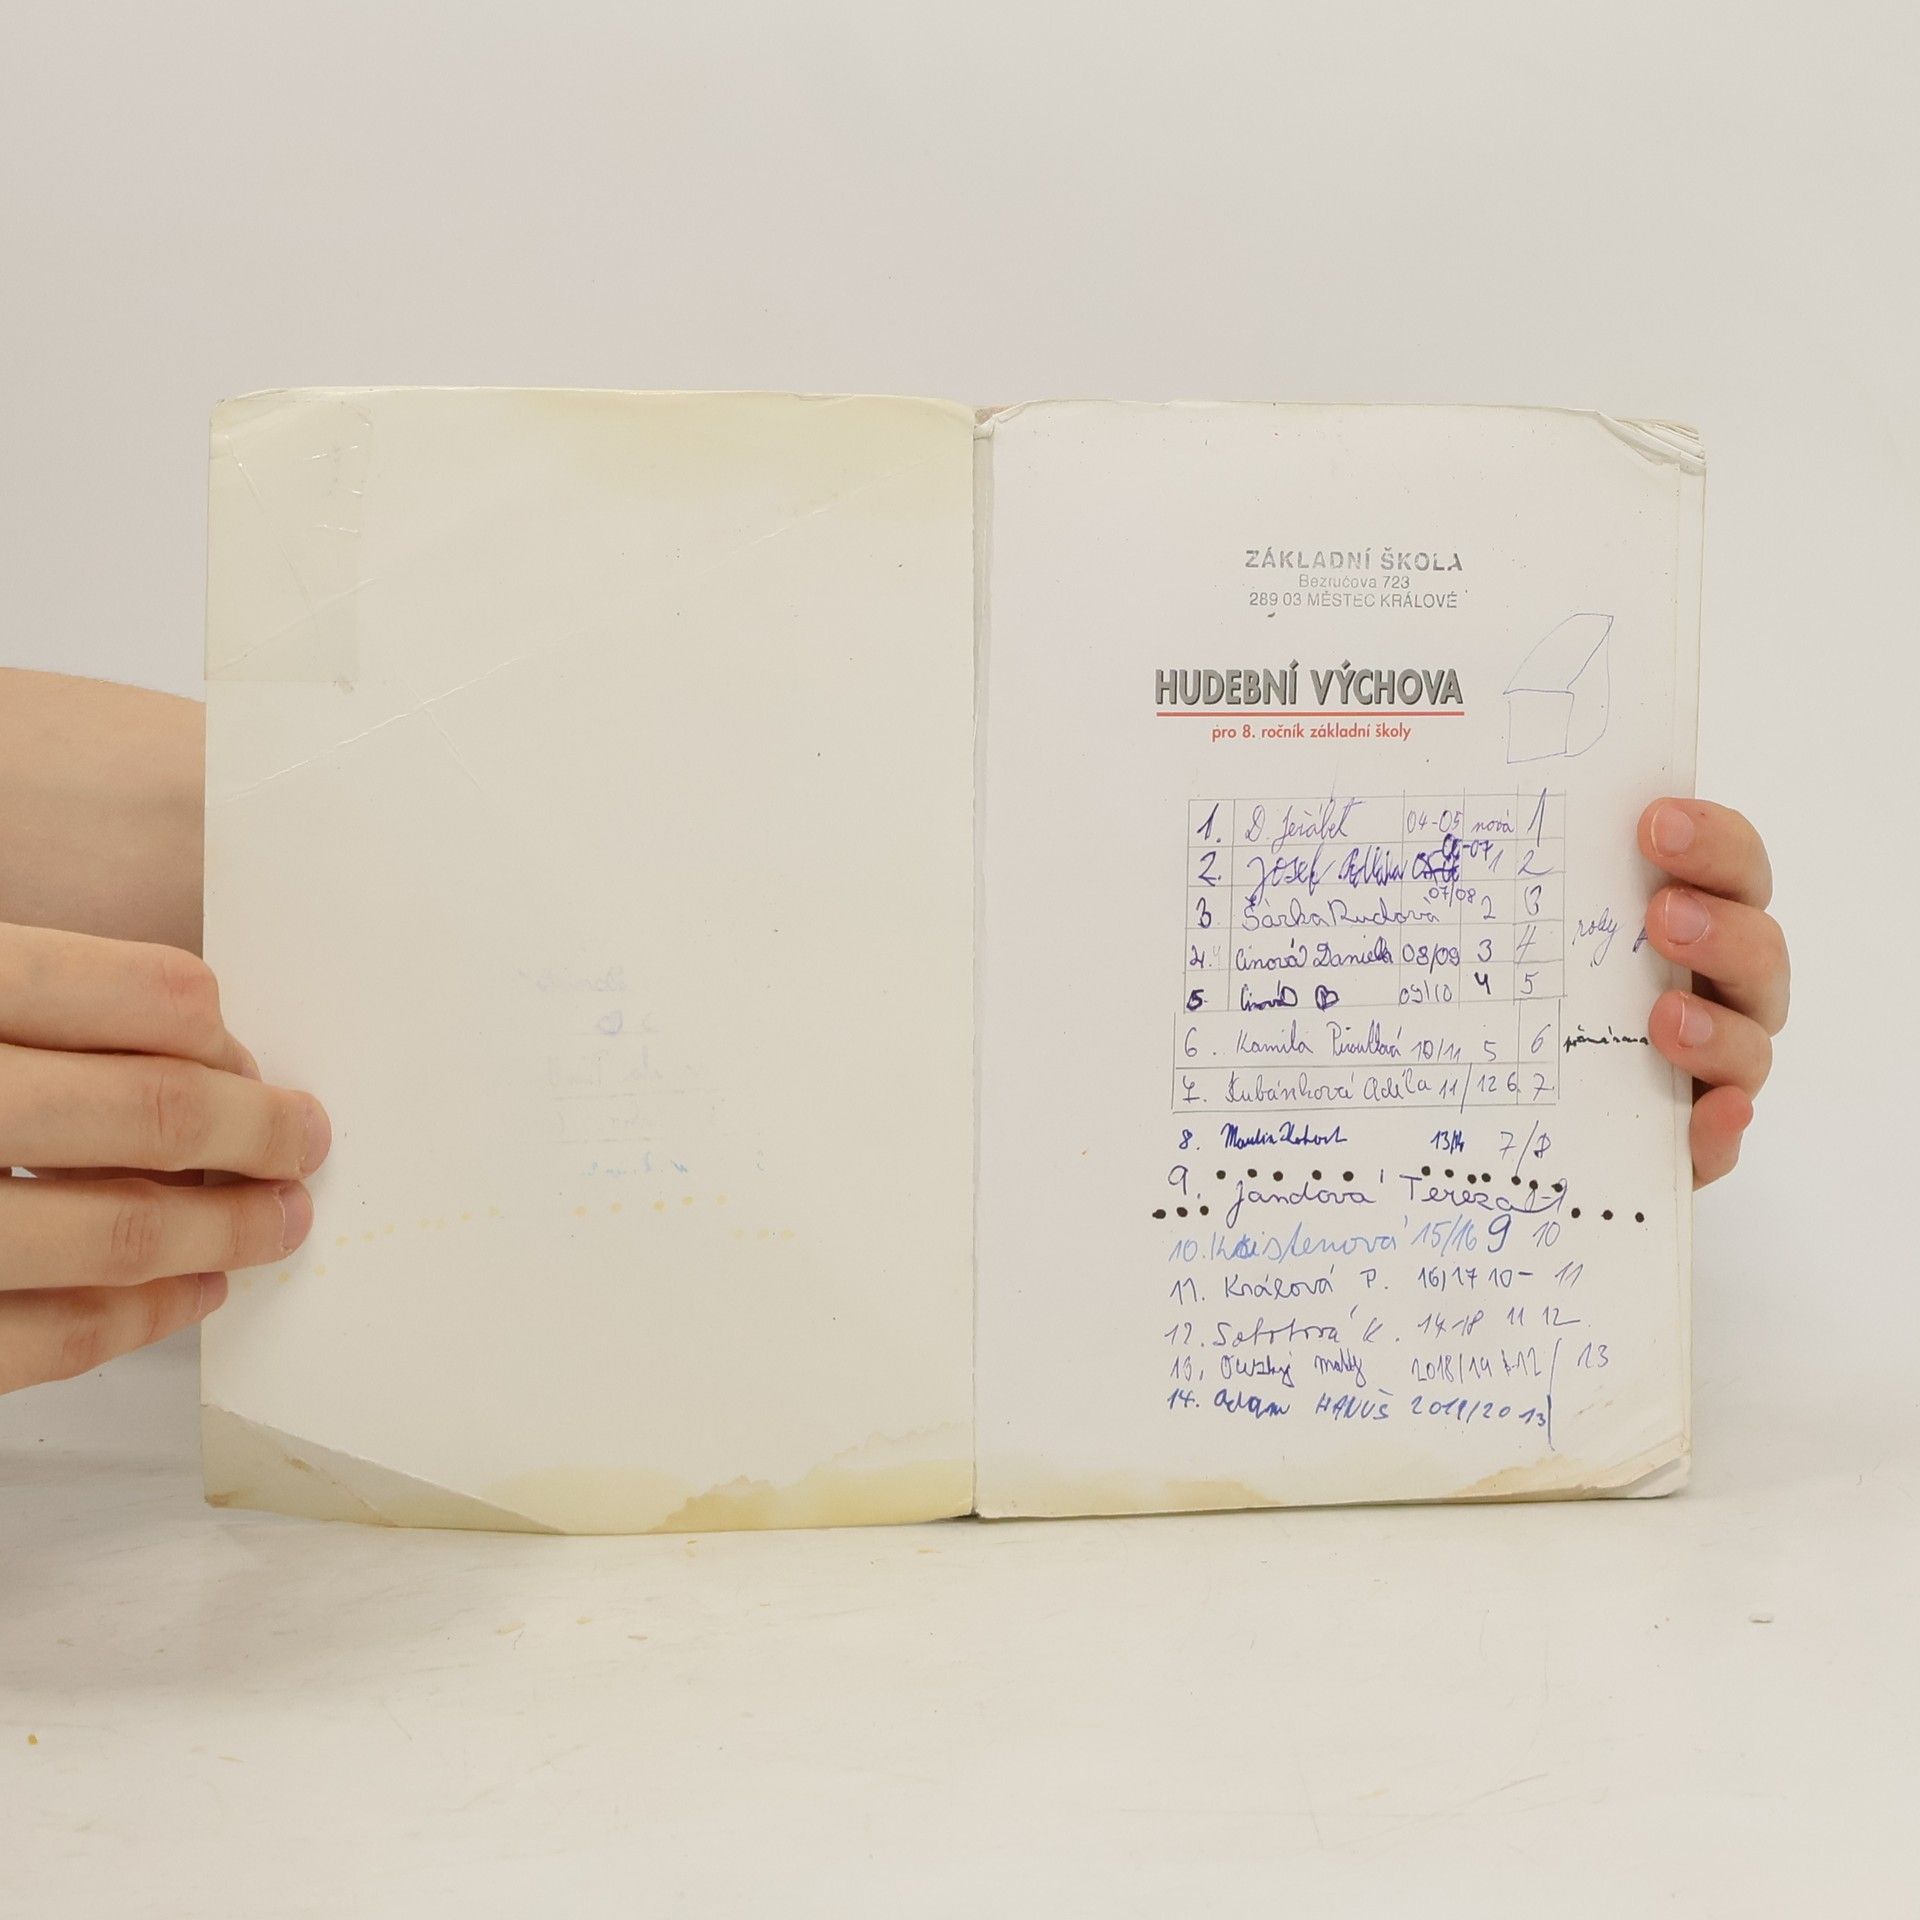 ZÁKLADNÍ ŠKOLA
Bezručova 723
289 03 MĚSTEC KRÁLOVÉ
HUDEBNÍ VÝCHOVA
pro 8. ročník základní školy
1. D. Jeřábek 04-05 nová 1
2. Josef 06-07 1 2
3 Šárka Ruchová 07/08 2 3
4. Cinová Daniela 08/09 3 4
5 Cinová D 09/10 4 5
6. Kamila 10/11 5 6
7. Kubánková Adéla 11/12 6 7
8. 13/14 7/8
9. Jandová Tereza
10. 15/16 9 10
11. Králová P. 16/17 10- 11
12. K. 17-18 11 12
13. 2018/19 12/ 13
14. Adam HANUŠ 2019/20 13